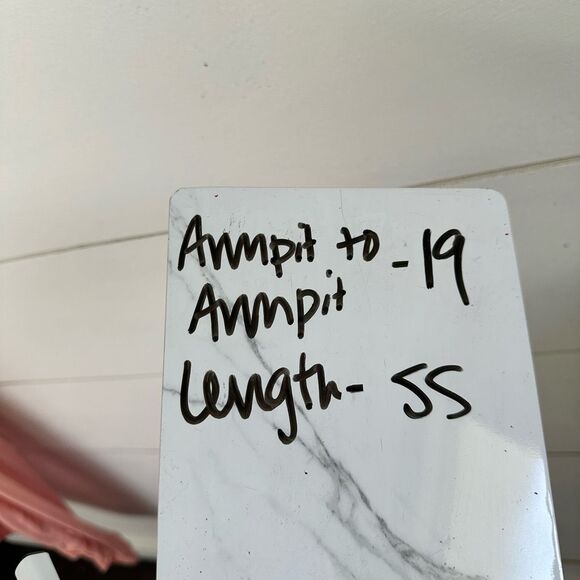 Armpit to - 19
Armpit
Length - 55